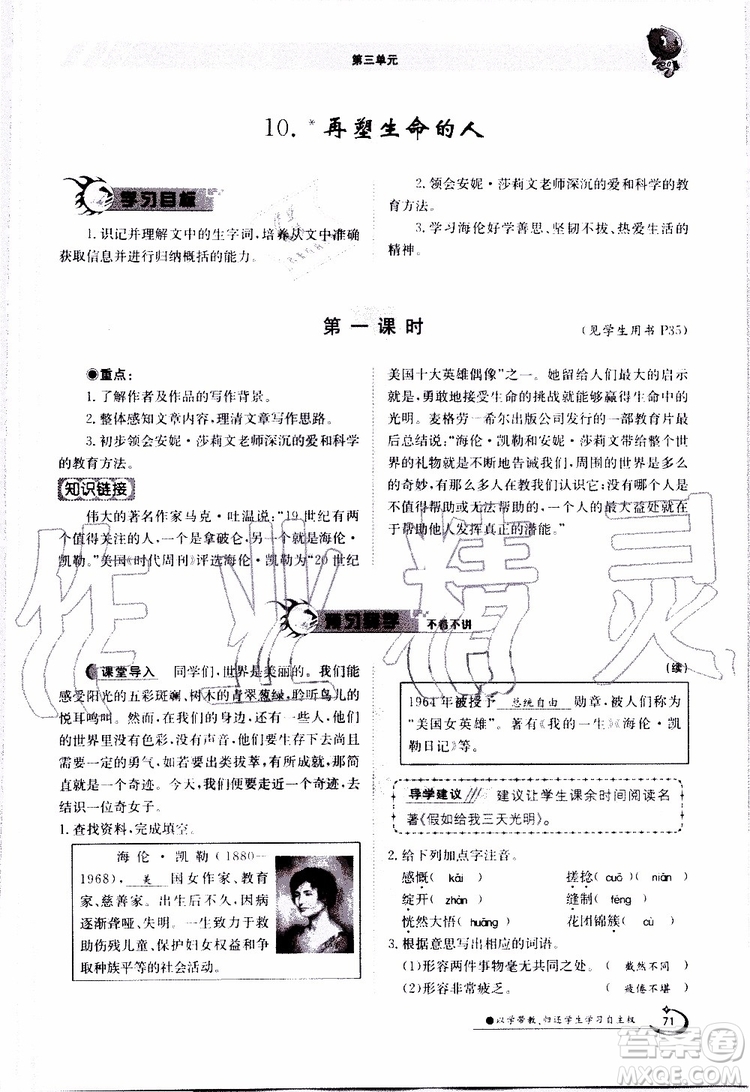 第三单元
10.*再塑生命的人
学习目标
1.识记并理解文中的生字词,培养从文中准确
获取信息并进行归纳概括的能力。
2.领会安妮·莎莉文老师深沉的爱和科学的教
育方法。
3.学习海伦好学善思、坚韧不拔、热爱生活的
精神。
第一课时
(见学生用书 P35)
●重点:
1.了解作者及作品的写作背景。
2.整体感知文章内容,理清文章写作思路。
3.初步领会安妮·莎莉文老师深沉的爱和科学
的教育方法。
知识链接
伟大的著名作家马克·吐温说:“19 世纪有两
个值得关注的人,一个是拿破仑,另一个就是海伦·
凯勒。”美国《时代周刊》评选海伦·凯勒为“20 世纪
美国十大英雄偶像”之一。她留给人们最大的启示
就是,勇敢地接受生命的挑战就能够赢得生命中的
光明。麦格劳—希尔出版公司发行的一部教育片最
后总结说:“海伦·凯勒和安妮·莎莉文带给整个世
界的礼物就是不断地告诫我们,周围的世界是多么
的奇妙,有多少人在教我们认识它;以及那些被认为
不值得帮助的人是多么重要,一个人的最大益处就在
于帮助他人发挥真正的潜能。”
预习导学
不看不讲
课堂导入 同学们,世界是美丽的。我们能
感受阳光的五彩斑斓、树木的青翠葱绿,聆听鸟儿的
悦耳鸣叫。然而,在我们的身边,还有一些人,他们
的世界里没有色彩,没有声音,但是他们却能创造出
一个又一个奇迹。今天,我们就走近一个奇迹,去
结识一位奇女子。
1.查找资料,完成填空。
海伦·凯勒(1880—
1968), 美 国女作家、教育
家、慈善家。出生后不久,因病
逐渐聋哑、失明。一生致力于救
助伤残儿童、保护妇女权益和争
取种族平等的社会活动。
(续)
1964 年被授予 总统自由 勋章,被人们称为
“美国女英雄”。著有《我的一生》《海伦·凯
勒日记》等。
导学建议 建议让学生课余时间阅读名
著《假如给我三天光明》。
2.给下列加点字注音。
感慨(kǎi) 搓捻(cuō)(niǎn)
绽开(zhàn) 缝制(féng)
恍然大悟(huǎng) 花团锦簇(cù)
3.根据意思写出相应的词语。
(1)形容两件事物毫无共同之处。(截然不同)
(2)形容非常疲乏。(疲倦不堪)
●以学带教,归还学生学习自主权
71
作业精灵
答案圈